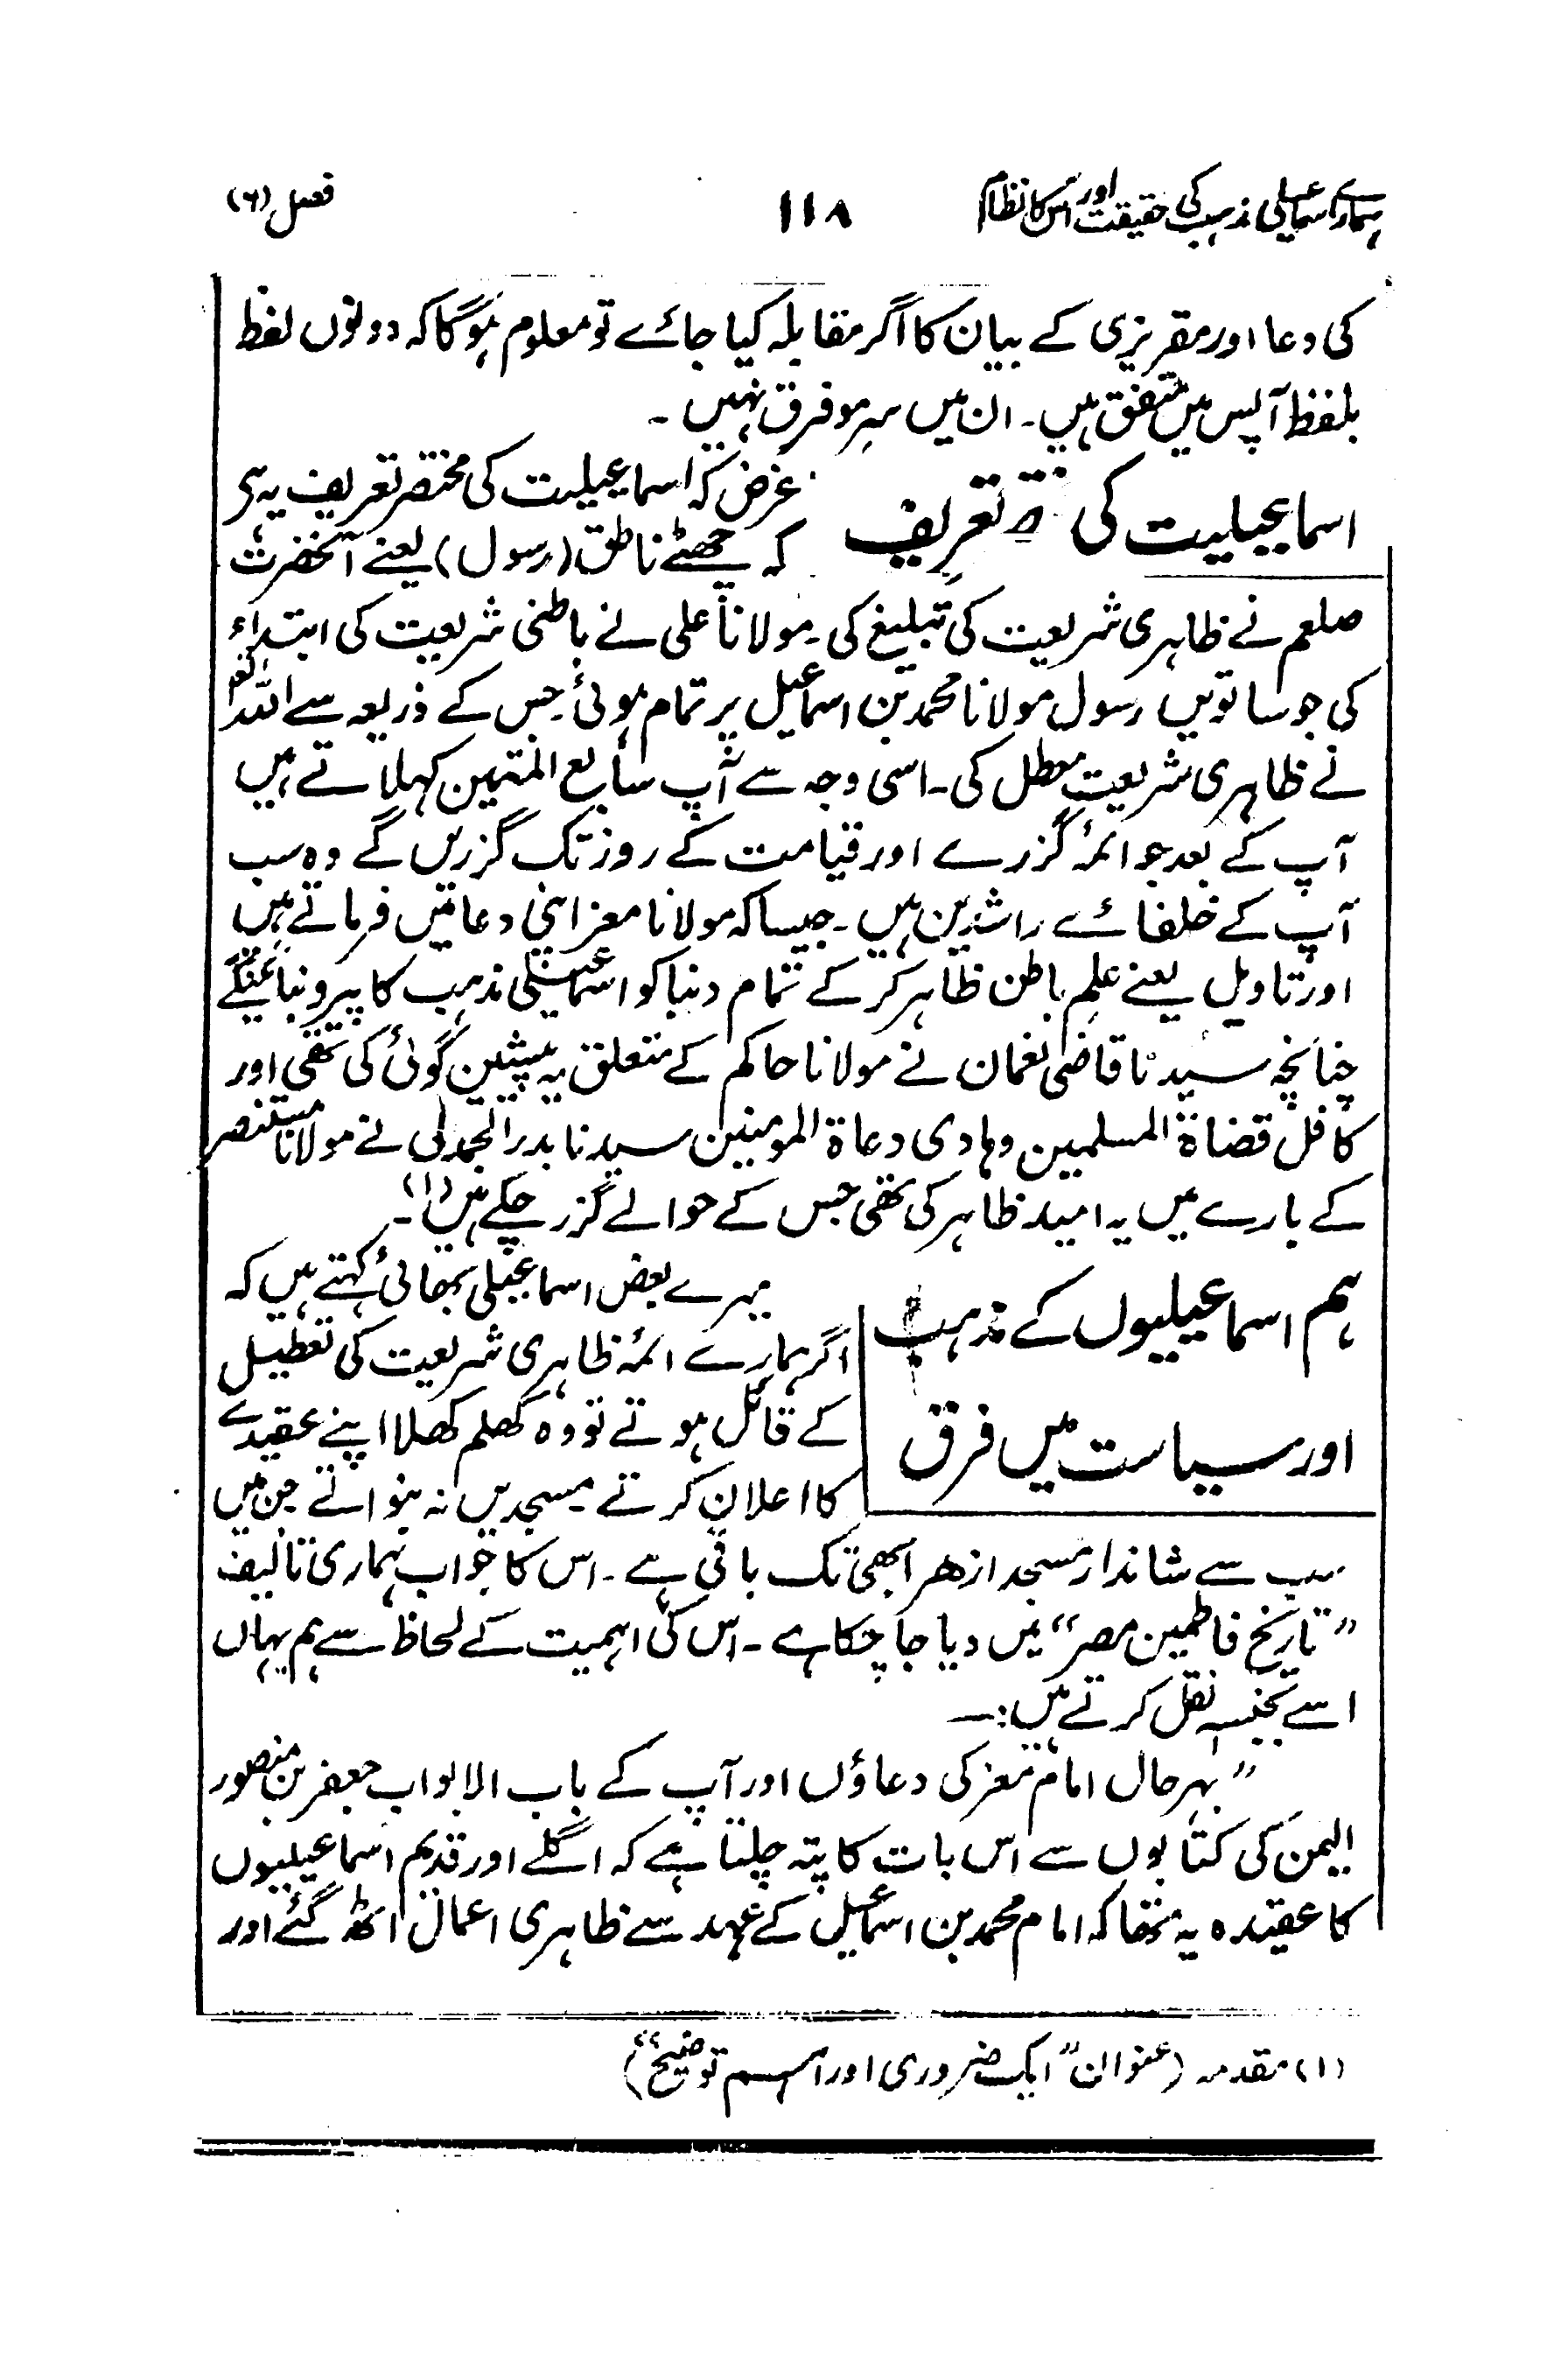 ہمارے اسماعیلی مذہب کی حقیقت اور اس کا نظام
۱۱۸
فصل (۶)
کی دعا اور مقریزی کے بیان کا اگر مقابلہ کیا جائے تو معلوم ہوگا کہ دونوں لفظ
بلفظ آپس میں متفق ہیں۔ ان میں سرِمو فرق نہیں۔
اسماعیلیت کی تعریف
غرض کہ اسماعیلیت کی مختصر تعریف یہ ہے
کہ چھٹے ناطق (رسول) یعنے آنحضرت
صلعم نے ظاہری شریعت کی تبلیغ کی۔ مولانا علی نے باطنی شریعت کی ابتداء
کی جو ساتویں رسول مولانا محمد بن اسماعیل پر تمام ہوئی۔ جس کے ذریعہ سے اللہ تعالٰی
نے ظاہری شریعت معطل کی۔ اسی وجہ سے آپ سابع المتمین کہلاتے ہیں
آپ کے بعد جو ائمہ گزرے اور قیامت کے روز تک گزریں گے وہ سب
آپ کے خلفائے راشدین ہیں۔ جیسا کہ مولانا معز اپنی دعا میں فرماتے ہیں
اور تاویل یعنے علمِ باطن ظاہر کر کے تمام دنیا کو اسماعیلی مذہب کا پیرو بنائینگے
چنانچہ سیدنا قاضی نعمان نے مولانا حاکم کے متعلق یہ پیشین گوئی کی تھی اور
کافل قضاۃ المسلمین وہادی دعاۃ المومنین سیدنا بدر الجمالی نے مولانا مستنصر
کے بارے میں یہ امید ظاہر کی تھی جس کے حوالے گزر چکے ہیں (۱)۔
ہم اسماعیلیوں کے مذہب
اور سیاست میں فرق
میرے بعض اسماعیلی بھائی کہتے ہیں کہ
اگر ہمارے ائمہ ظاہری شریعت کی تعطیل
کے قائل ہوتے تو وہ کھلم کھلا اپنے عقیدے
کا اعلان کرتے۔ مسجدیں نہ بنواتے جن میں
سب سے شاندار مسجد ازھر ابھی تک باقی ہے۔ اس کا جواب ہماری تالیف
”تاریخ فاطمیین مصر“ میں دیا جا چکا ہے۔ اس کی اہمیت کے لحاظ سے ہم یہاں
اسے بجنسہ نقل کرتے ہیں:—
”بہرحال امام معز کی دعاؤں اور آپ کے باب الابواب جعفر بن منصور
الیمن کی کتابوں سے اس بات کا پتہ چلتا ہے کہ اگلے اور قدیم اسماعیلیوں
کا عقیدہ یہ تھا کہ امام محمد بن اسماعیل کے عہد سے ظاہری اعمال اٹھ گئے اور
(۱) مقدمہ (عنوان ”ایک ضروری اور اہم توضیح“)